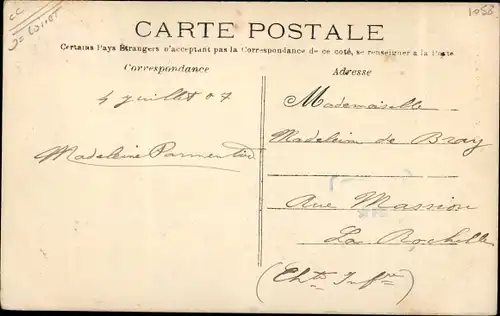 1050
CARTE POSTALE
Certains Pays Étrangers n'acceptant pas la Correspondance de ce coté, se renseigner à la Poste
Correspondance
Adresse
4 juillet 07
Mademoiselle
Madeleine Parmentier
Madeleine de Bray
Rue Massiou
La Rochelle
(Chte Infre)